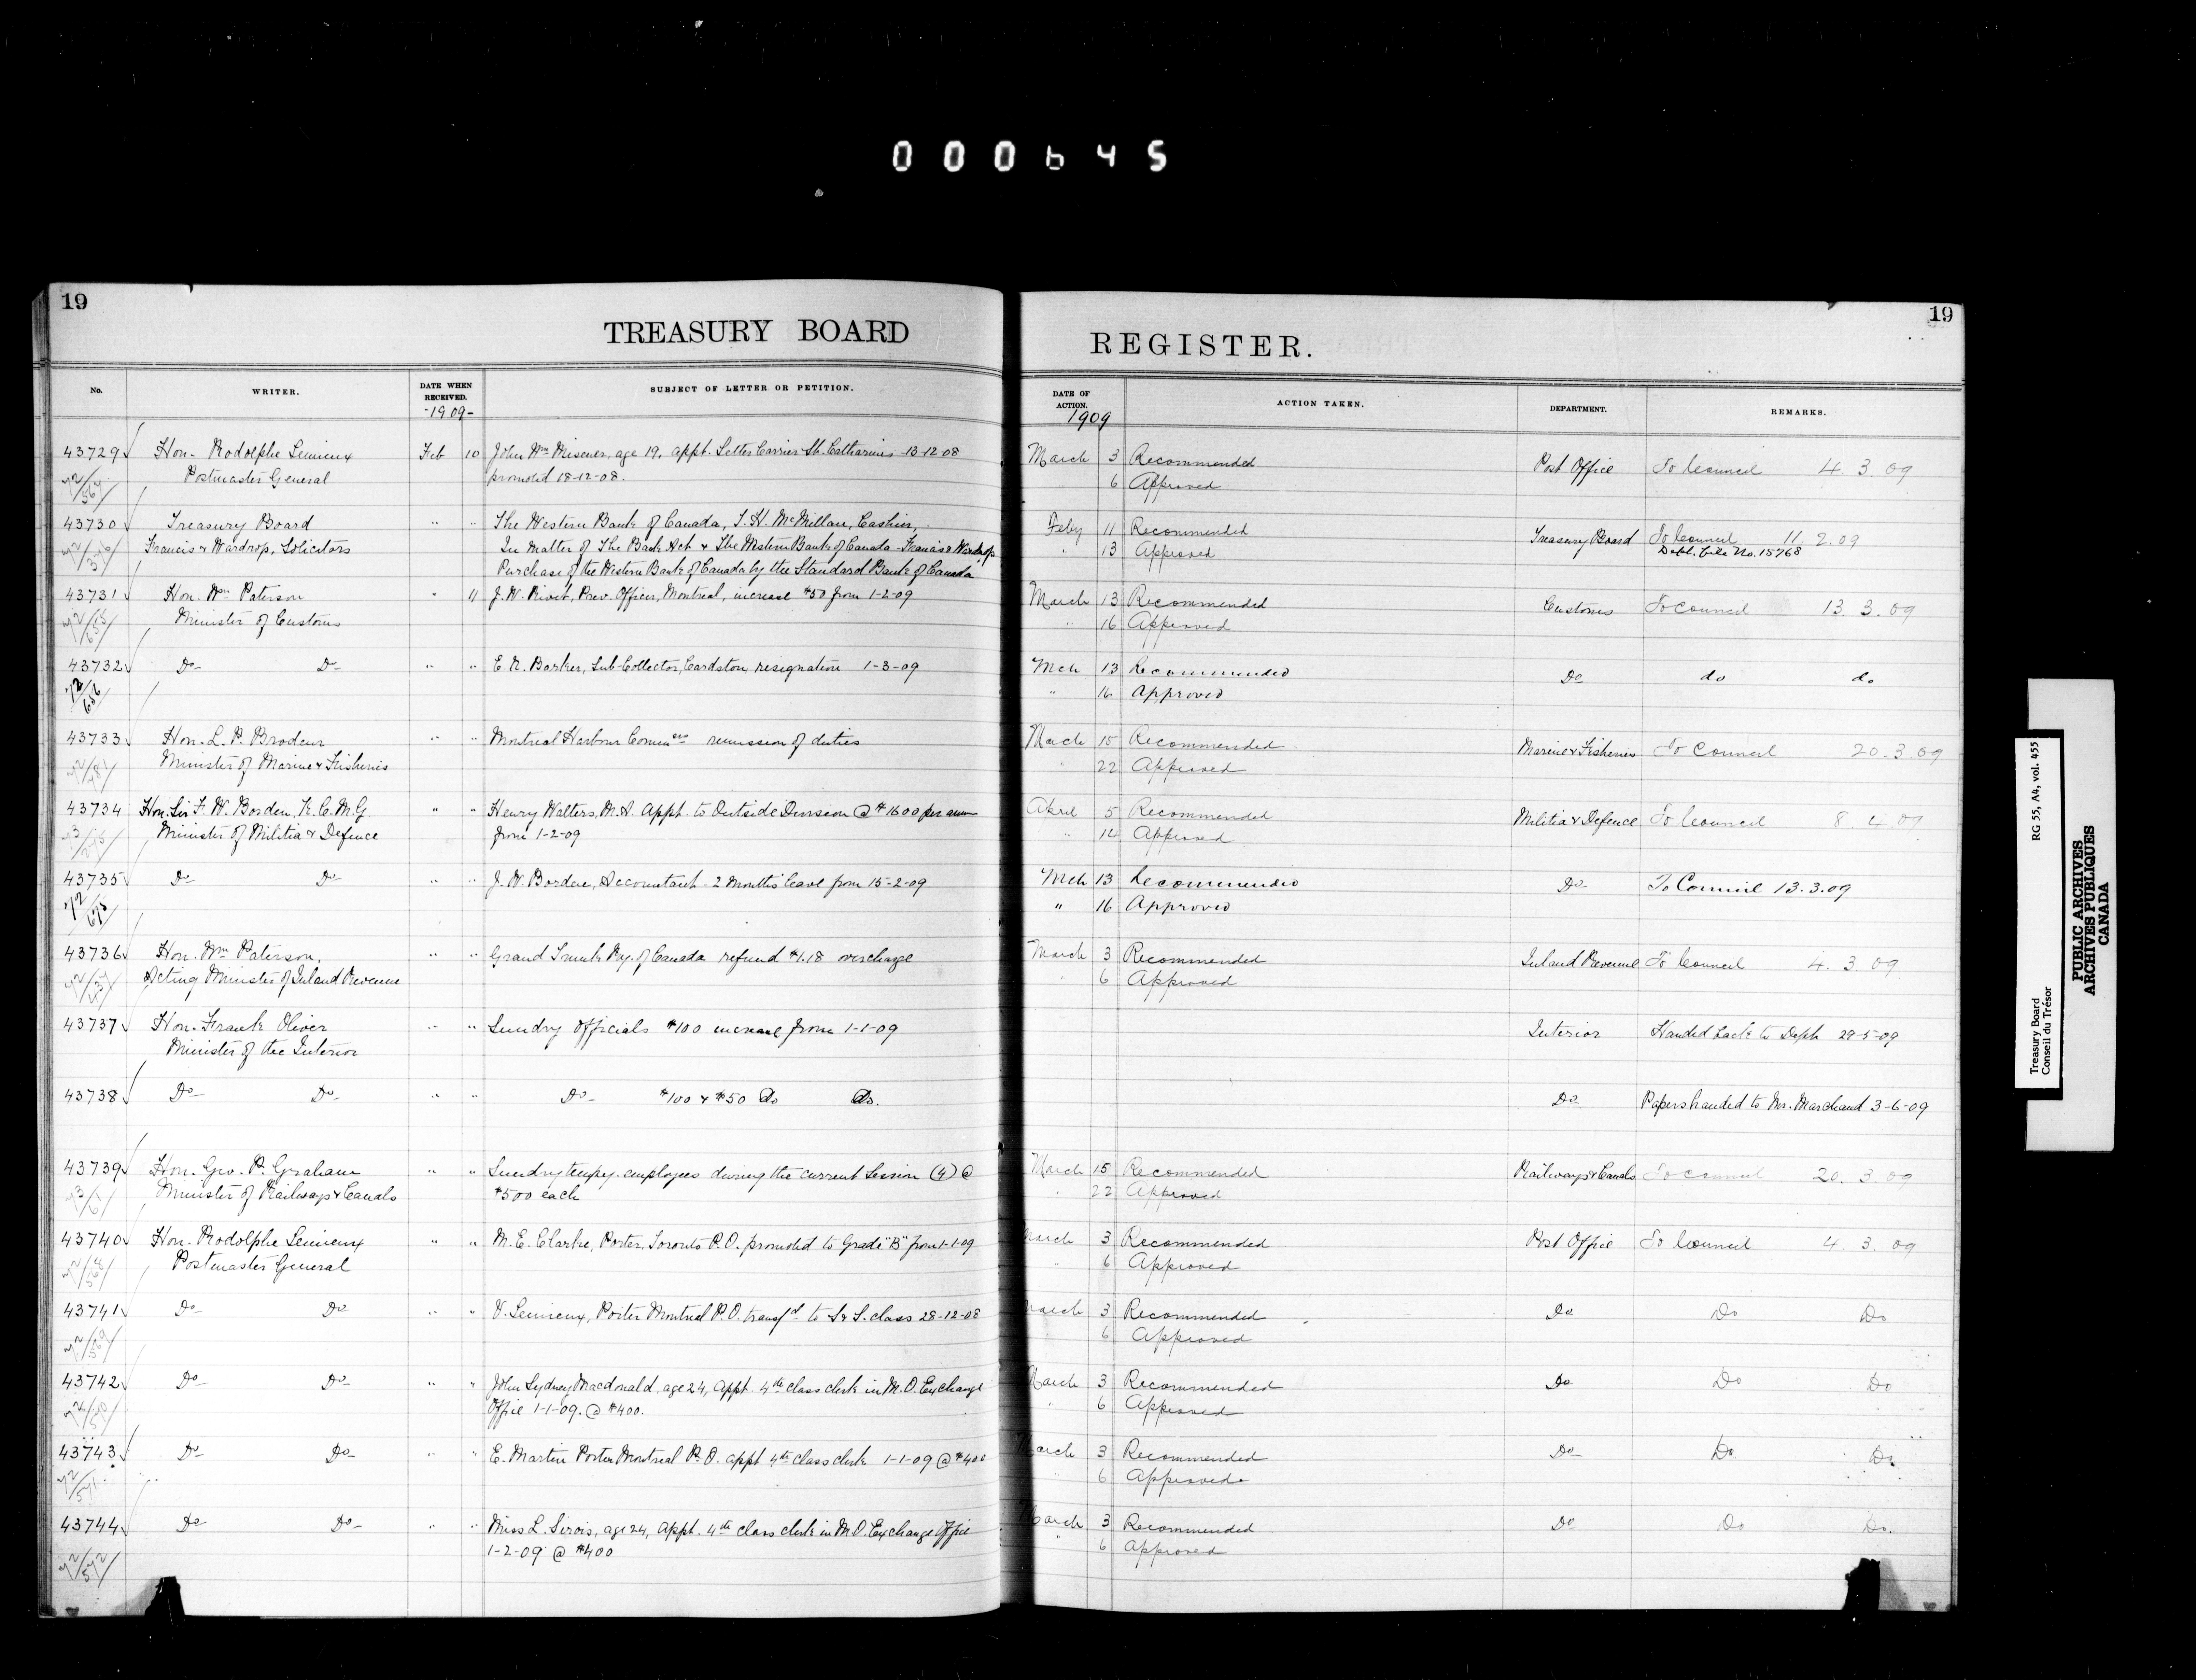 000645
19
TREASURY BOARD
No.
WRITER.
DATE WHEN RECEIVED.
-1909-
SUBJECT OF LETTER OR PETITION.
43729 Hon. Rodolphe Lemieux Feb 10 John Wm Misener, age 19, appt. Letter Carrier St. Catharines 13-12-08
Postmaster General promoted 18-12-08.
43730 Treasury Board " " The Western Bank of Canada, T. H. McMillan, Cashier,
Francis & Wardrop, Solicitors In Matter of The Bank Act & The Western Bank of Canada - Francis & Wardrop
Purchase of the Western Bank of Canada by the Standard Bank of Canada
43731 Hon. Wm Paterson " 11 J. W. Rivet, Prev. Officer, Montreal, increase $50 from 1-2-09
Minister of Customs
43732 Do Do " " E. N. Barker, Sub-Collector, Cardston, resignation 1-3-09
72/656
43733 Hon. L. P. Brodeur " " Montreal Harbour Commrs remission of duties
Minister of Marine & Fisheries
43734 Hon. Sir F. W. Borden, K.C.M.G " " Henry Walters, M.A. Appt. to Outside Division @ $1600 per annum
Minister of Militia & Defence from 1-2-09
43735 Do Do " " J. W. Borden, Accountant - 2 months' leave from 15-2-09
72/675
43736 Hon. Wm Paterson, " " Grand Trunk Ry. of Canada refund $1.18 overcharge
Acting Minister of Inland Revenue
43737 Hon. Frank Oliver " " Sundry Officials $100 increase from 1-1-09
Minister of the Interior
43738 Do Do " " Do $100 & $50 Do Do.
43739 Hon. Geo. P. Graham " " Sundry tempy. employees during the current Session (4) @
Minister of Railways & Canals $500 each
43740 Hon. Rodolphe Lemieux " " M. E. Clarke, Porter, Toronto P.O. promoted to Grade "B" from 1-1-09
Postmaster General
43741 Do Do " " V. Lemieux, Porter Montreal P.O. transfd to S & S. class 28-12-08
43742 Do Do " " John Sydney Macdonald, age 24, appt. 4th class clerk in M.O. Exchange
Office 1-1-09. @ $400.
43743 Do Do " " E. Martin Porter Montreal P.O. appt 4th class clerk 1-1-09 @ $400
72/571
43744 Do Do " " Miss L. Sirois, age 24, Appt. 4th class clerk in M.O. Exchange Office
72/572 1-2-09 @ $400
19
REGISTER.
DATE OF ACTION.
1909
ACTION TAKEN.
DEPARTMENT.
REMARKS.
March 3 Recommended Post Office To Council 4. 3. 09
6 Approved
Feby 11 Recommended Treasury Board To Council 11. 2. 09
" 13 Approved Dept. File No. 15768
March 13 Recommended Customs To Council 13. 3. 09
" 16 Approved
Mch 13 Recommended Do do do
" 16 Approved
March 15 Recommended Marine & Fisheries To Council 20. 3. 09
" 22 Approved
April 5 Recommended Militia & Defence To Council 8 4. 09
" 14 Approved
Mch 13 Recommended Do To Council 13.3.09
" 16 Approved
March 3 Recommended Inland Revenue To Council 4. 3. 09
" 6 Approved
Interior Handed back to Dept 28-5-09
Do Papers handed to Mr. Marchand 3-6-09
March 15 Recommended Railways & Canals To Council 20. 3. 09
" 22 Approved
March 3 Recommended Post Office To Council 4. 3. 09
" 6 Approved
March 3 Recommended Do Do Do
" 6 Approved
March 3 Recommended Do Do Do
" 6 Approved
March 3 Recommended Do Do Do
" 6 Approved
March 3 Recommended Do Do Do.
" 6 Approved
Treasury Board RG 55, A4, vol. 455
Conseil du Trésor
PUBLIC ARCHIVES
ARCHIVES PUBLIQUES
CANADA